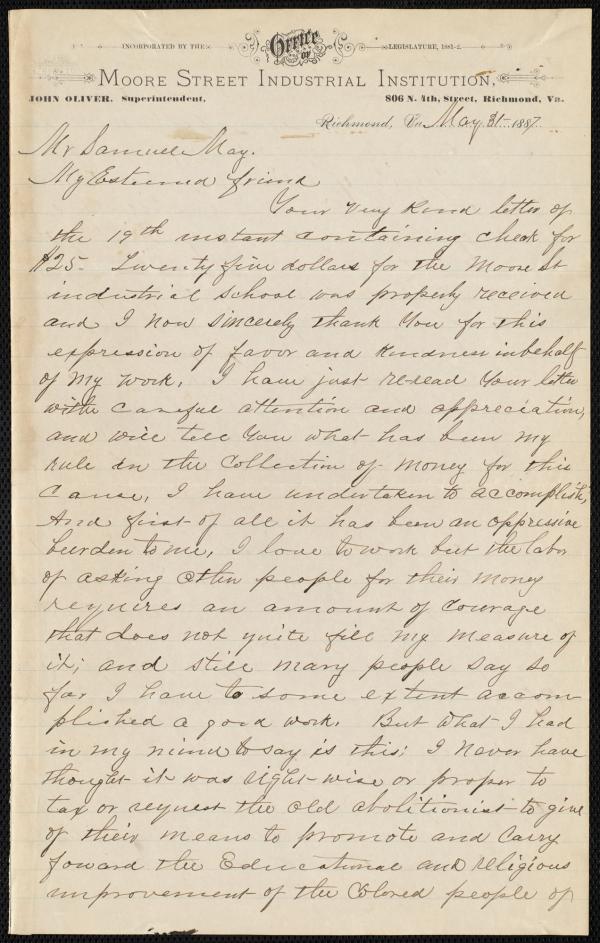 INCORPORATED BY THE Office OF LEGISLATURE, 1881-2.
MOORE STREET INDUSTRIAL INSTITUTION,
JOHN OLIVER. Superintendent, 806 N. 4th, Street, Richmond, Va.
Richmond, Va. May 31 1887.
Mr Samuel May.
My Esteemed friend
Your very kind letter of
the 19th instant containing check for
$25- Twenty five dollars for the Moore St
industrial school was properly received
and I now sincerely thank You for this
expression of favor and kindness in behalf
of my work. I have just re-read Your letter
with careful attention and appreciation,
and will tell You what has been my
rule in the Collection of money for this
Cause, I have undertaken to accomplish,
And first of all it has been an oppressive
burden to me, I love to work but the labor
of asking other people for their money
requires an amount of courage
that does not quite fill my measure of
it; and still many people say so
far I have to some extent accom-
plished a good work. But what I had
in my mind to say is this; I never have
thought it was right wise or proper to
tax or request the old abolitionist to give
of their means to promote and carry
foward the Educational and religious
improvement of the Colored people of